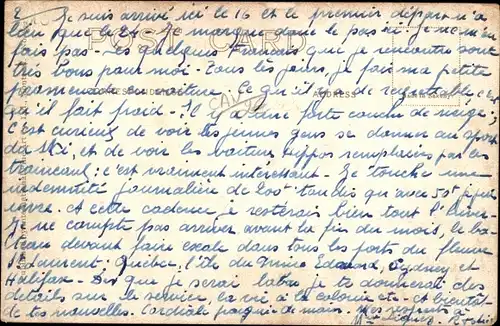 2 Je suis arrivé ici le 16 et le premier départ n'a
lieu que le 24. Je marque dans le pas ici. Je ne m'en
fais pas. Les quelques Français que je rencontre sont
très bons pour moi. Tous les jours je fais ma petite
promenade en voiture. Ce qu'il y a de regrettable, c'est
qu'il fait froid. Il y a une forte couche de neige;
c'est curieux de voir les jeunes gens se donner au sport
du ski, et de voir les voitures hippos remplacées par les
traineaux; c'est vraiment intéressant. Je touche une
indemnité journalière de 200f tandis qu'avec 50f je peux
vivre. A cette cadence je resterais bien tout l'hiver.
Je ne compte pas arriver avant la fin du mois, le ba-
teau devant faire escale dans tous les ports du fleuve
St Laurent: Québec, l'île du Prince Edouard, Sydney et
Halifax. Dès que je serai là bas je te donnerai des
détails sur le service, la vie à la colonie etc. A bientôt
de tes nouvelles. Cordiale poignée de main. Mes respects à
POST CARD
CORRESPONDENCE
ADDRESS